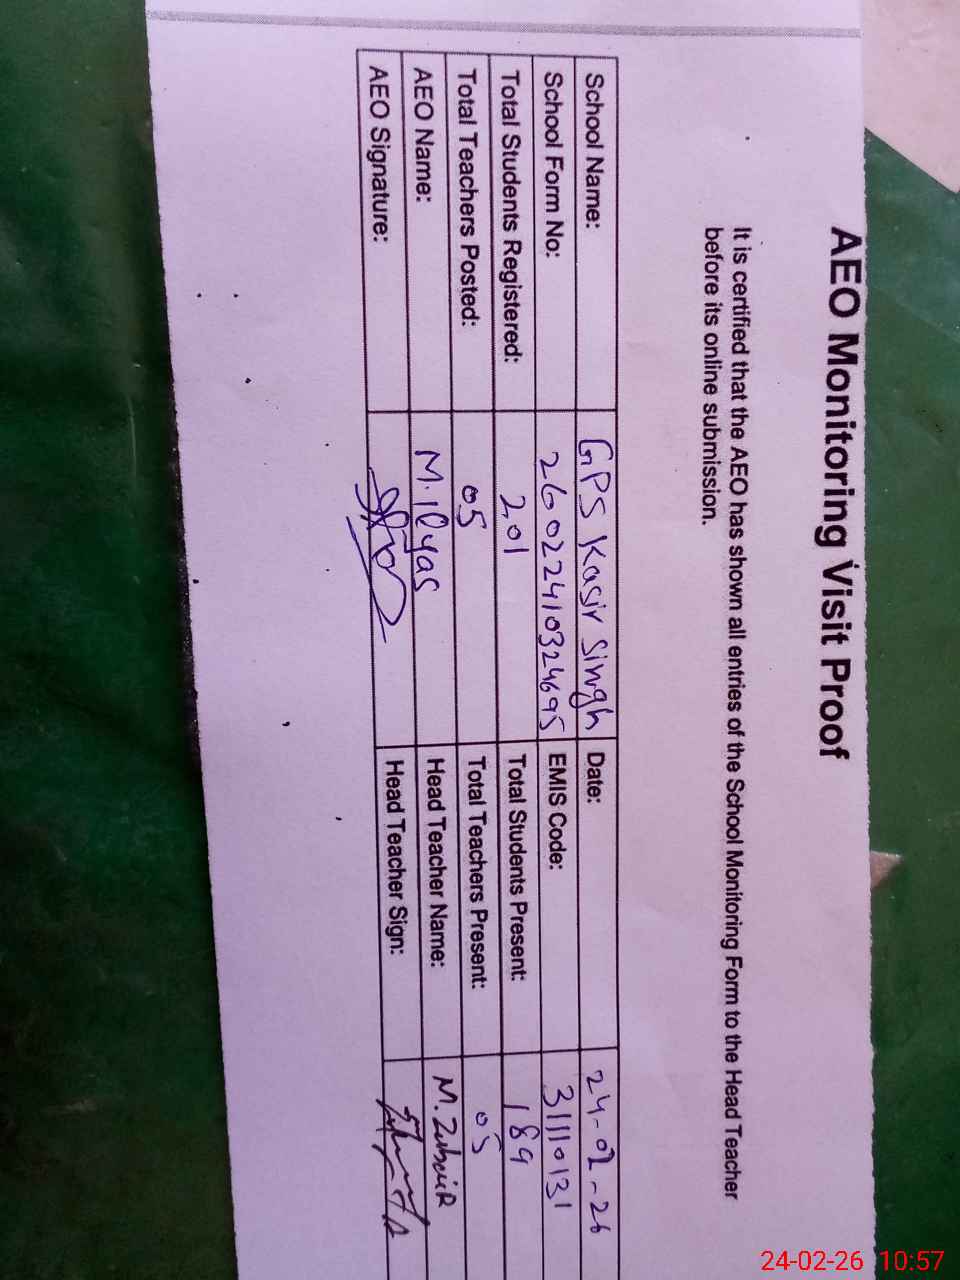 AEO Monitoring Visit Proof
It is certified that the AEO has shown all entries of the School Monitoring Form to the Head Teacher
before its online submission.
School Name: GPS Kasir Singh Date: 24-02-26
School Form No: 26022410324695 EMIS Code: 31110131
Total Students Registered: 201 Total Students Present: 189
Total Teachers Posted: 05 Total Teachers Present: 05
AEO Name: M. Ilyas Head Teacher Name: M. ZubaiR
AEO Signature: Head Teacher Sign:
24-02-26 10:57